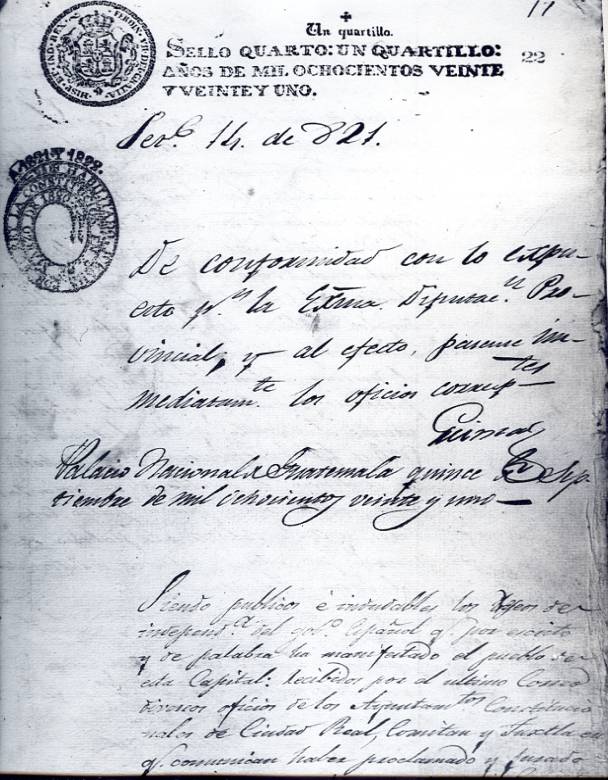 17
Un quartillo.
SELLO QUARTO: UN QUARTILLO:
AÑOS DE MIL OCHOCIENTOS VEINTE
Y VEINTE Y UNO.
22
14. de 821.
1821 Y 1822.
De conformidad con lo expu-
esto pr. la Exma. Diputacn. Pro-
vincial, y al efecto, pasense in-
mediatamte. los oficios corresptes
Palacio Nacional de Guatemala quince de Sep-
tiembre de mil ochocientos veinte y uno
Siendo publicos é indudables los deseos de
independa. del gobo. Español qe. por escrito
y de palabra ha manifestado el pueblo de
esta Capital: recibidos por el ultimo Correo
diversos oficios de los Ayuntamtos. Constitucio
nales de Ciudad Real, Comitan y Tuxtla en
qe. comunican haber proclamado y jurado